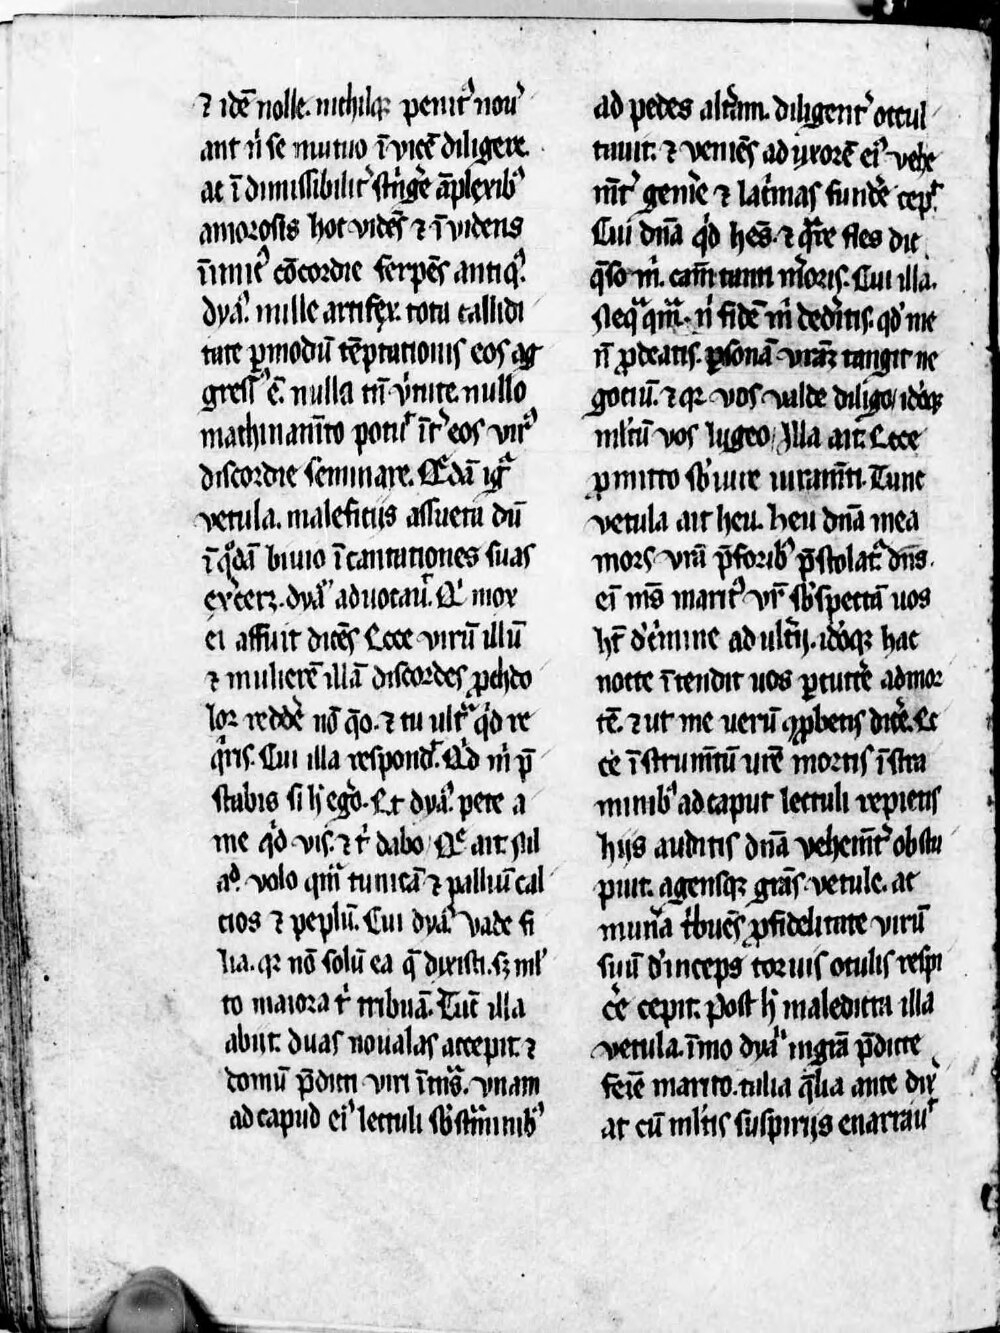 ⁊ idē nolle. nichilqꝫ penitꝰ nouͥ
ant nͥ se mutuo ī uicē diligere.
ac ī dimissibilit͛ strīge͛ āplexibꝰ
amorosis hoc vidēs ⁊ īuidens
īimicꝰ cōcordie serpēs antiqꝰ.
dyaꝰ. mille artifex. tota callidi
tate ꝑmodū tēptationis eos ag
gressꝰ ē. nulla tn̄ ūtute. nullo
machinam̄to potuͥt īt͛ eos virꝰ
discordie seminare. Qͣdā igͥ
vetula. maleficijs assueta dū
ī qͦdā biuio īcantationes suas
exͨcerꝫ. dyaꝰ aduocauͥ. Qͥ mox
ei affuit dicēs Ecce virū illū
⁊ mulierē illā discordes ꝓchdo
lor redde͛ nō q̄o. ⁊ tu ultͣ qͥd re
qͥris. Cui illa respondꝭ. Qͥd mͥ p̄
stabis si hͦ egͦo. Et dyaꝰ. pete a
me qͥd vis. ⁊ tͥ dabo. Qͤ ait. nil
aͩ. volo qͣm tunicā ⁊ palliū cal
cios ⁊ peplū. Cui dyaꝰ vade fi
lia. qꝛ nō solū ea q̄ dixisti. sꝫ ml
to maiora tͥ tribuā. Tūc illa
abijt. duas noualas accepit. ⁊
domū p̄dicti viri ītͣns. vnam
ad capud eiꝰ lectuli sb̄ st͛minibꝰ
ad pedes altam. diligent͛ occul
tauit. ⁊ veniēs ad vxorē eiꝰ vehe
m̄t͛ geme͛ ⁊ lacͥmas funde͛ cepͭ.
Cui dn̄a qͥd hēs. ⁊ qͣre fles dic
q̄so mͥ. cam̄ tanti m͛oris. Cui illa.
Neqͣqͣm. nͥ fidē mͥ ded͛itis. qd̓ me
n̄ ꝓdeatis. ꝑsonā vrāꝫ tangit ne
gociū. ⁊ qꝛ vos valde diligo, idͦqꝫ
ml̄tū vos lugeo, Illa ait. Ecce
ꝓmitto sb̄ iure iuram̄ti. Tunc
vetula ait heu. heu dn̄a mea
mors vrā p̄ foribꝰ p̄stolat͛. dn̄s.
eī mͤs maritꝰ vr̄ sb̄spectā uos
hꝫ dͤ c͛mine adult͛ij. idͦqꝫ hac
nocte ītendit uos ꝑcute͛ ad mor
tē. ⁊ ut me uerū ꝓbetis dice͛. Ec
ce īstrum̄tū vr̄e mortis ī stra
minibꝰ ad caput lectuli repietis
hijs auditis dn̄a vehem̄t͛ obstu
puit. agensqꝫ grās. vetule. ac
mun͛a tͥbuēs ꝓ fidelitate virū
suū dͤinceps toruis oculis respi
ce͛ cepit. Post hͦ maledicta illa
vetula. īmo dyaꝰ ingrā p̄dicte
feīe marito. talia q̄lia ante dix͛
at cū ml̄tis suspirijs enarrauͭ